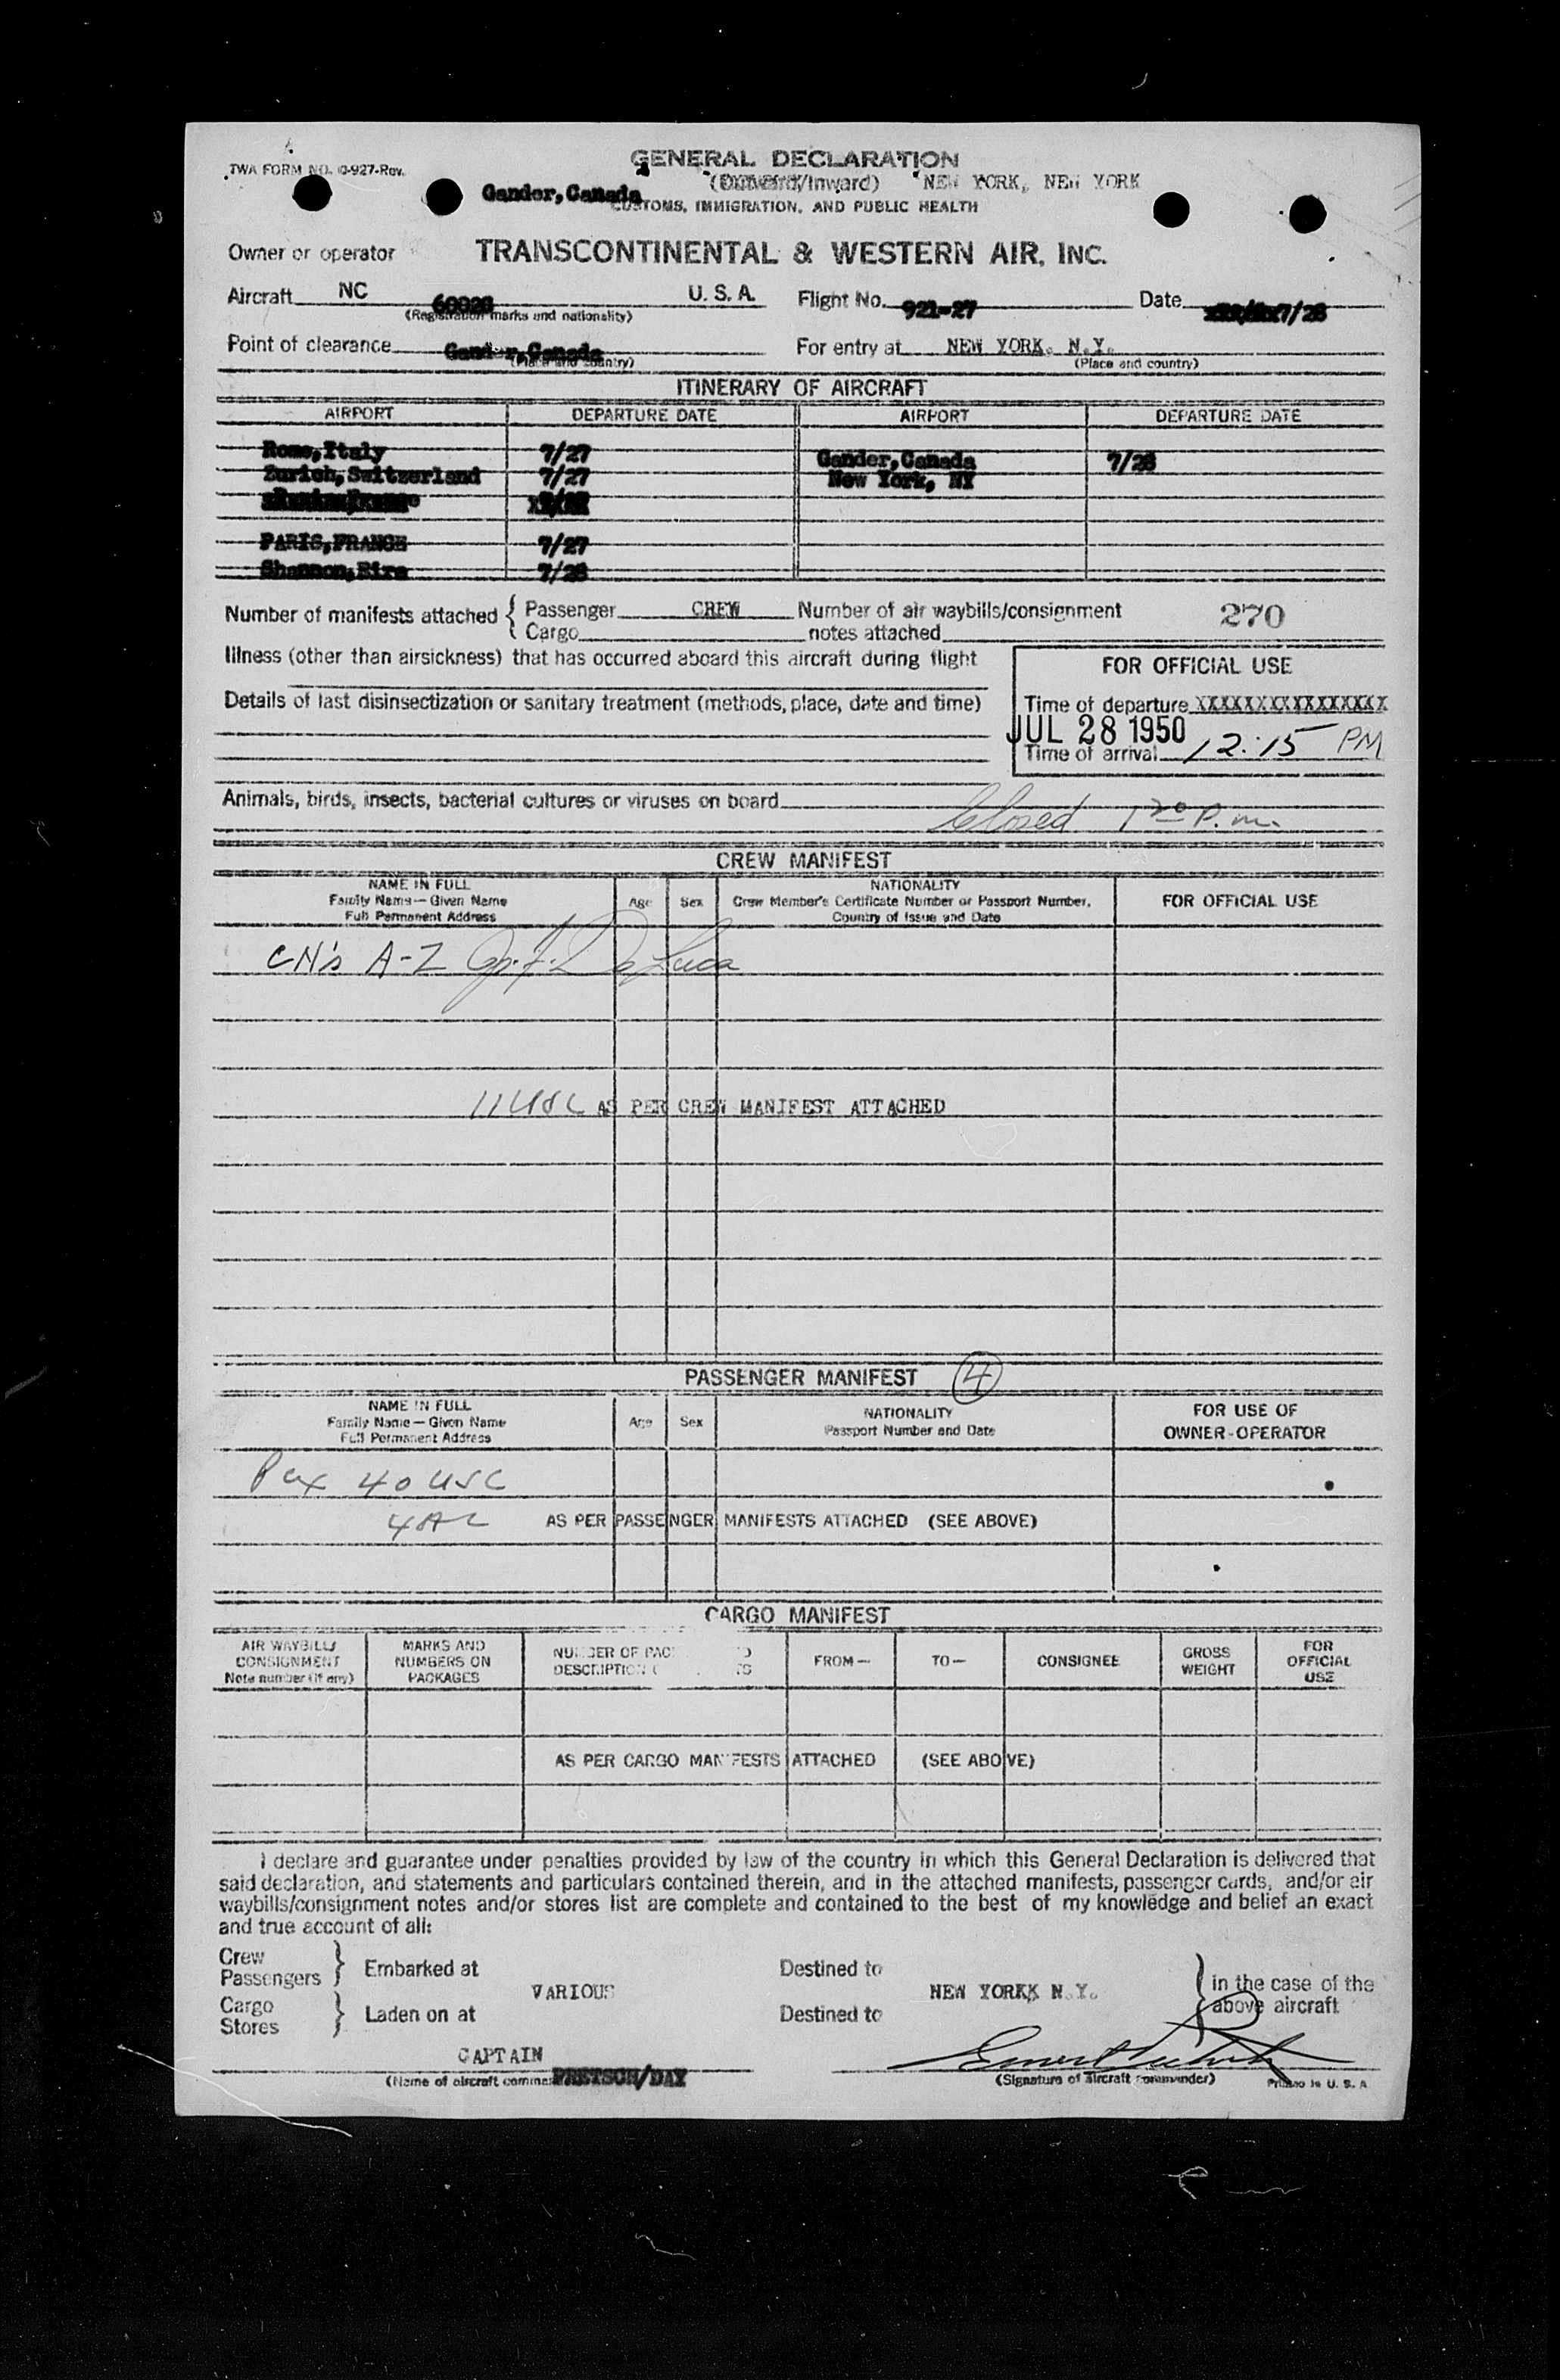 TWA FORM NO. 0-927-Rev.
GENERAL DECLARATION
(Outward/Inward) NEW YORK, NEW YORK
Gander, Canada
CUSTOMS, IMMIGRATION, AND PUBLIC HEALTH
Owner or operator TRANSCONTINENTAL & WESTERN AIR, INC.
Aircraft NC U. S. A. Flight No. 921-27 Date 7/28
(Registration marks and nationality)
Point of clearance Gander, Canada For entry at NEW YORK, N.Y.
(Place and country) (Place and country)
ITINERARY OF AIRCRAFT
AIRPORT DEPARTURE DATE AIRPORT DEPARTURE DATE
Rome, Italy 7/27 Gander, Canada 7/28
Zurich, Switzerland 7/27 New York, NY
PARIS, FRANCE 7/27
Shannon, Eire 7/28
Number of manifests attached { Passenger CREW Number of air waybills/consignment 270
Cargo notes attached
Illness (other than airsickness) that has occurred aboard this aircraft during flight
FOR OFFICIAL USE
Details of last disinsectization or sanitary treatment (methods, place, date and time)
Time of departure XXXXXXXXXXXXXXXX
JUL 28 1950
Time of arrival 12:15 PM
Animals, birds, insects, bacterial cultures or viruses on board
Closed 1 20 P.m.
CREW MANIFEST
NAME IN FULL
Family Name — Given Name
Full Permanent Address
Age Sex
NATIONALITY
Crew Member's Certificate Number or Passport Number,
Country of Issue and Date
FOR OFFICIAL USE
CN's A-Z De Luca
11 USC AS PER CREW MANIFEST ATTACHED
PASSENGER MANIFEST 4
NAME IN FULL
Family Name — Given Name
Full Permanent Address
Age Sex
NATIONALITY
Passport Number and Date
FOR USE OF
OWNER-OPERATOR
Pax 40 USC
AS PER PASSENGER MANIFESTS ATTACHED (SEE ABOVE)
CARGO MANIFEST
AIR WAYBILL/
CONSIGNMENT
Note number (if any)
MARKS AND
NUMBERS ON
PACKAGES
NUMBER OF
DESCRIPTION
FROM — TO — CONSIGNEE
GROSS
WEIGHT
FOR
OFFICIAL
USE
AS PER CARGO MANIFESTS ATTACHED (SEE ABOVE)
I declare and guarantee under penalties provided by law of the country in which this General Declaration is delivered that
said declaration, and statements and particulars contained therein, and in the attached manifests, passenger cards, and/or air
waybills/consignment notes and/or stores list are complete and contained to the best of my knowledge and belief an exact
and true account of all:
Crew
Passengers } Embarked at Destined to
VARIOUS NEW YORKK N.Y. } in the case of the
above aircraft
Cargo
Stores } Laden on at Destined to
CAPTAIN
(Name of aircraft PRETSCH/DAY
(Signature of aircraft commander) Printed in U. S. A.